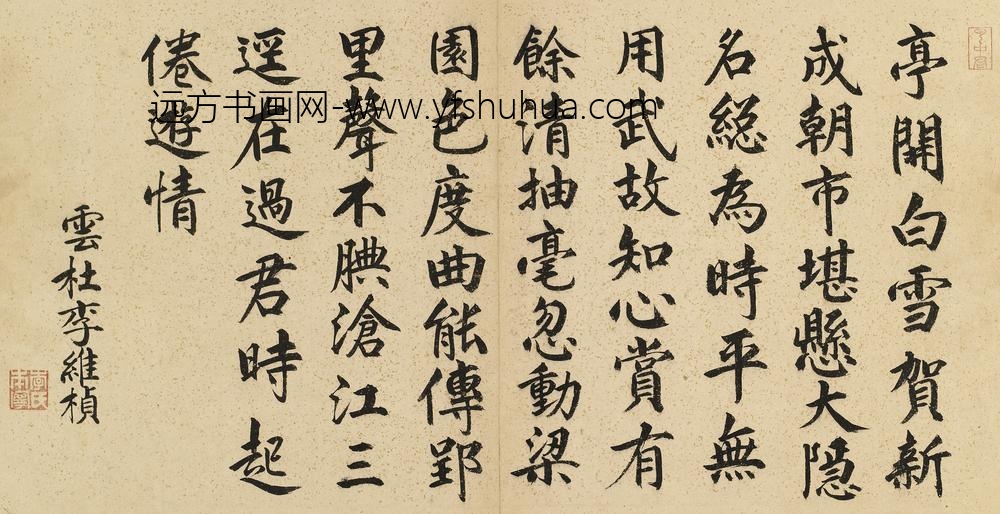 亭開白雪賀新
成朝市堪懸大隱
名総為時平無
用武故知心賞有
餘清抽毫忽動梁
園色度曲能傳郢
里聲不腆滄江三
逕在過君時起
倦遊情
雲杜李維楨
李氏本寧
远方书画网-www.yfshuhua.com